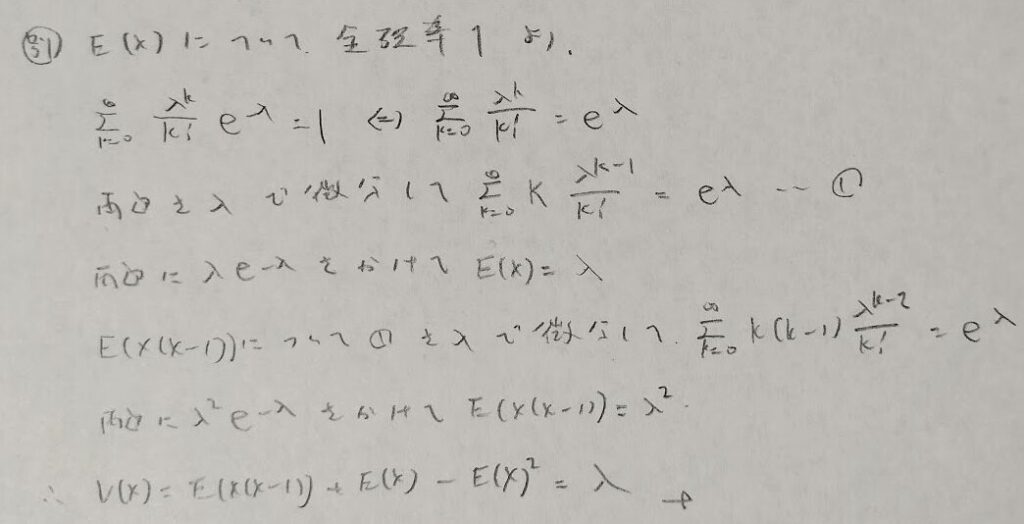 別) E(X)について、全確率1より、
∑_{k=0}^{∞} λ^k/k! e^λ = 1 ⇔ ∑_{k=0}^{∞} λ^k/k! = e^λ
両辺をλで微分して ∑_{k=0}^{∞} k λ^{k-1}/k! = e^λ … ①
両辺にλe^{-λ}をかけて E(X) = λ
E(X(X-1))について①をλで微分して、∑_{k=0}^{∞} k(k-1) λ^{k-2}/k! = e^λ
両辺にλ^2 e^{-λ}をかけて E(X(X-1)) = λ^2.
∴ V(X) = E(X(X-1)) + E(X) - E(X)^2 = λ